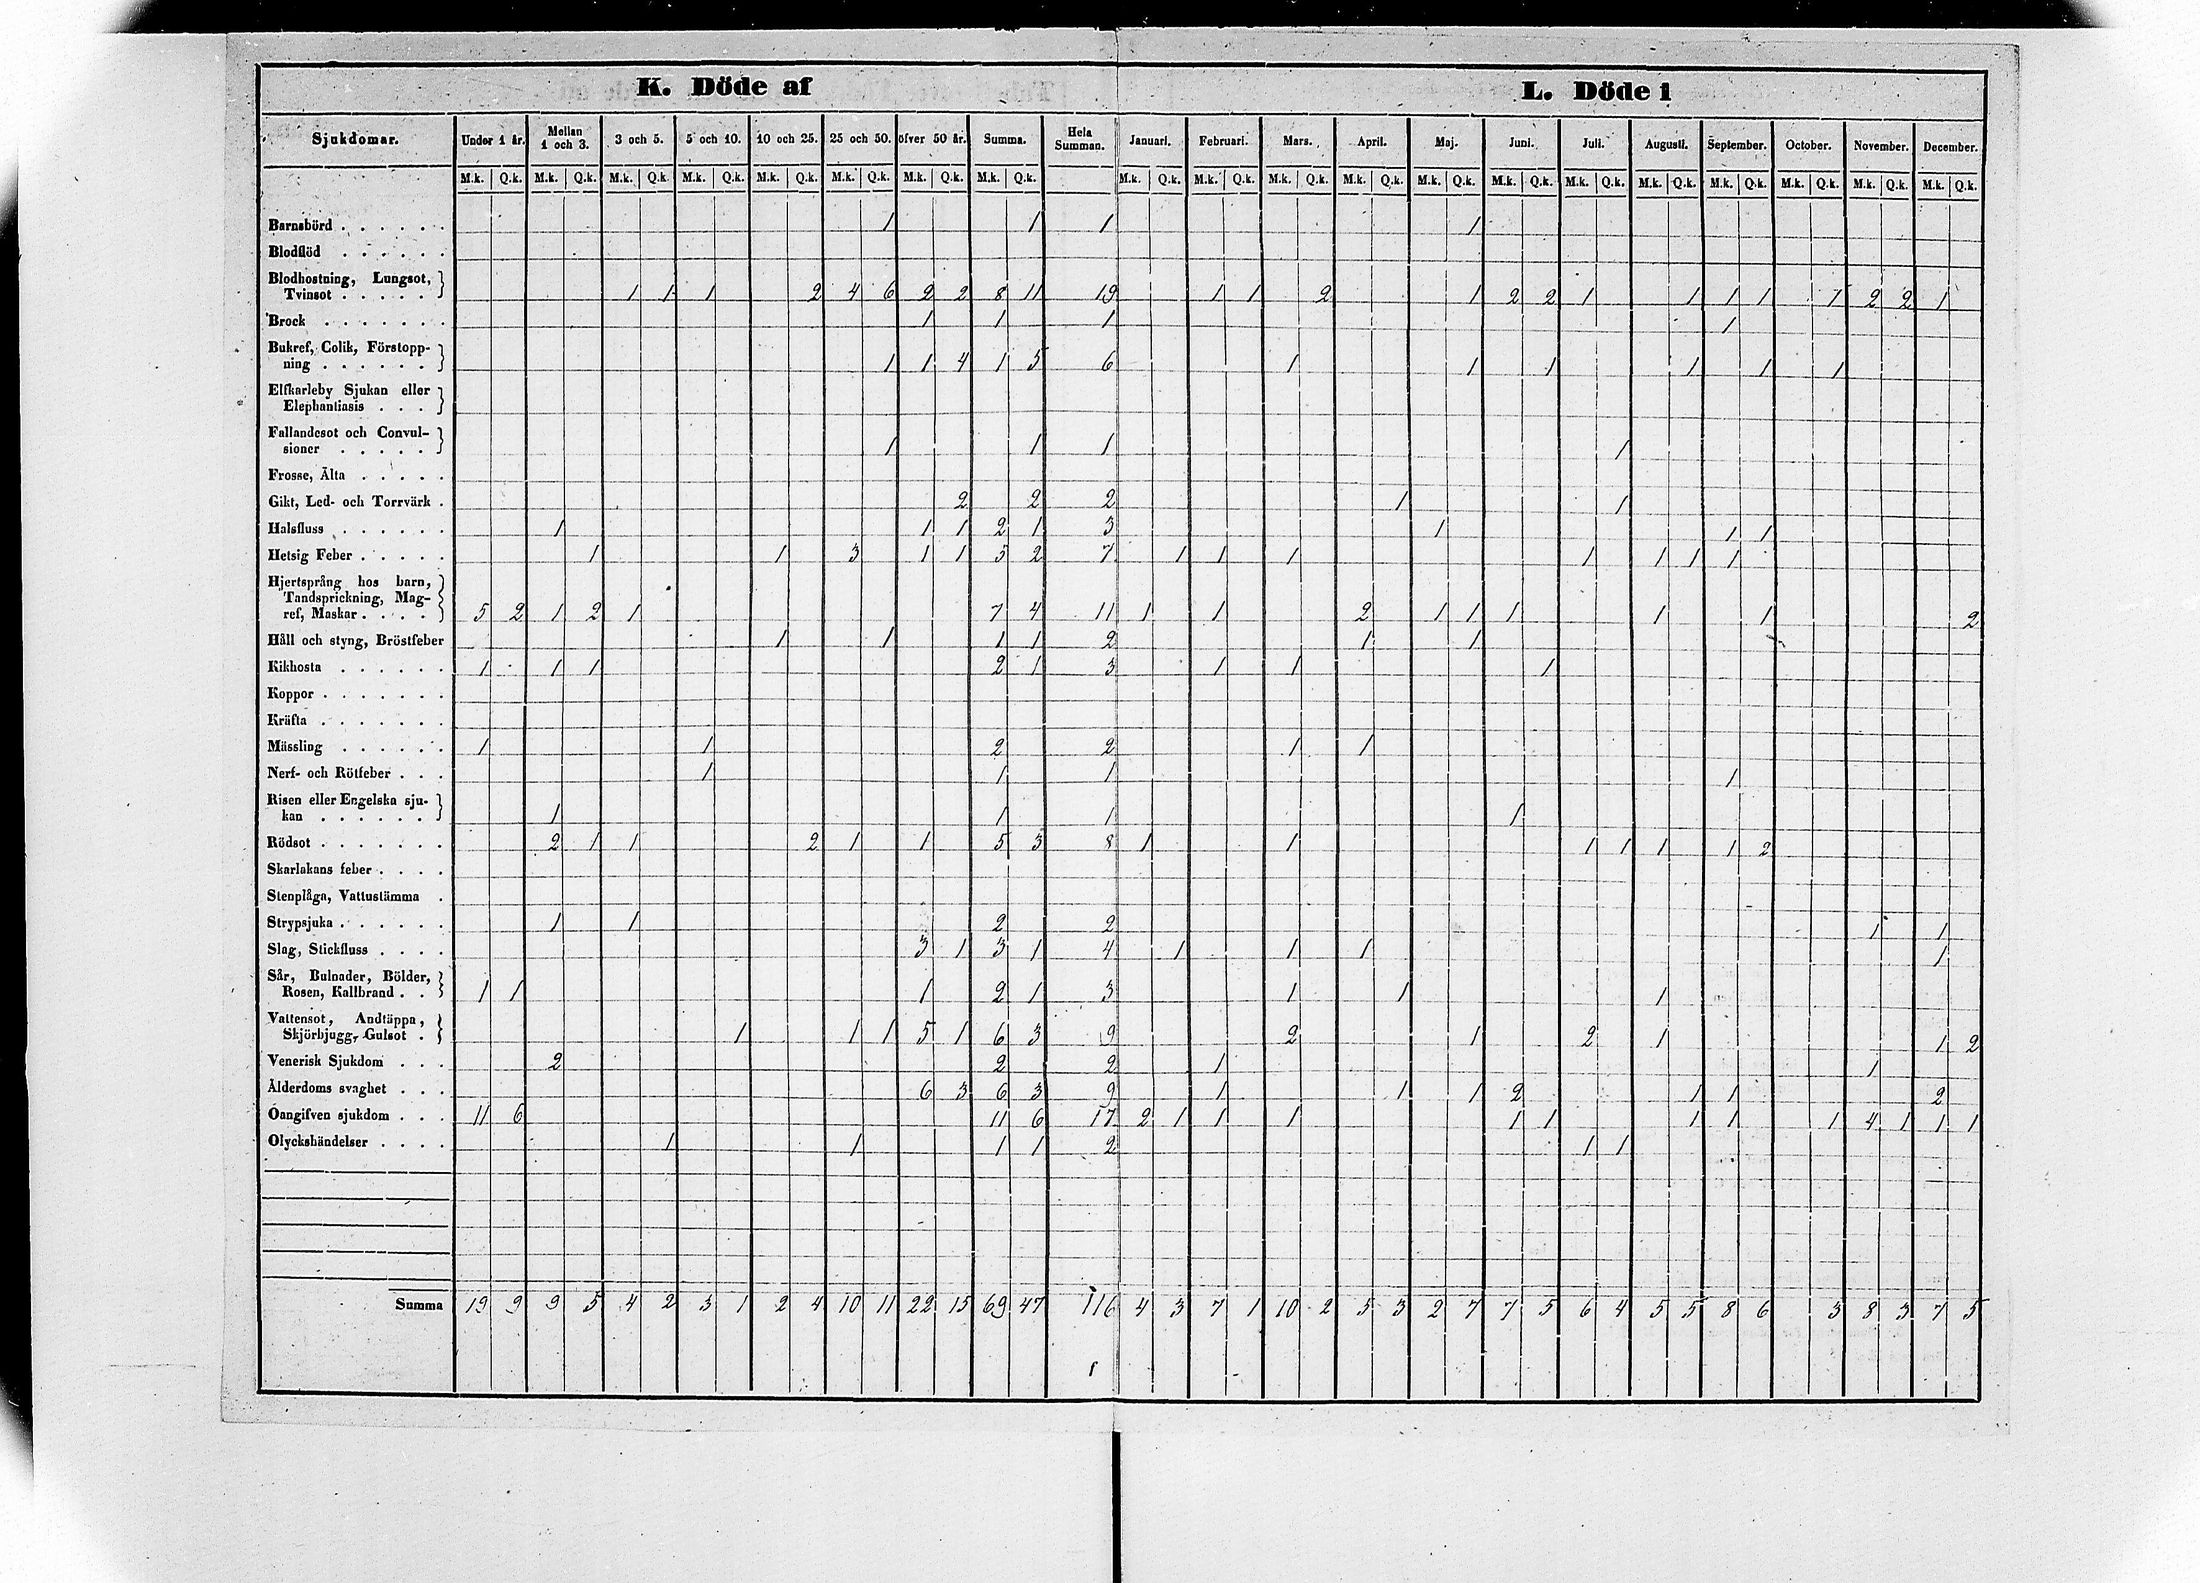 K. Döde af L. Döde i
Sjukdomar. Under 1 år. Mellan 1 och 3. 3 och 5. 5 och 10. 10 och 25. 25 och 50. öfver 50 år. Summa. Hela Summan. Januari. Februari. Mars. April. Maj. Juni. Juli. Augusti. September. October. November. December.
M.k. Q.k. M.k. Q.k. M.k. Q.k. M.k. Q.k. M.k. Q.k. M.k. Q.k. M.k. Q.k. M.k. Q.k. M.k. Q.k. M.k. Q.k. M.k. Q.k. M.k. Q.k. M.k. Q.k. M.k. Q.k. M.k. Q.k. M.k. Q.k. M.k. Q.k. M.k. Q.k. M.k. Q.k. M.k. Q.k.
Barnsbörd . . . . . . 1 1 1 1
Blodflöd . . . . . .
Blodhostning, Lungsot,
Tvinsot . . . . . 1 1 1 2 4 6 2 2 8 11 19 1 1 2 1 2 2 1 1 1 1 1 2 2 1
Brock . . . . . . . 1 1 1 1
Bukref, Colik, Förstopp-
ning . . . . . . 1 1 4 1 5 6 1 1 1 1 1 1
Elfkarleby Sjukan eller
Elephantiasis . . .
Fallandesot och Convul-
sioner . . . . . 1 1 1 1
Frosse, Älta . . . . .
Gikt, Led- och Torrvärk . 2 2 2 1 1
Halsfluss . . . . . . 1 1 1 2 1 3 1 1 1
Hetsig Feber . . . . . 1 1 3 1 1 5 2 7 1 1 1 1 1 1 1
Hjertsprång hos barn,
Tandsprickning, Mag-
ref, Maskar . . . . 5 2 1 2 1 7 4 11 1 1 2 1 1 1 1 1 2
Håll och styng, Bröstfeber 1 1 1 1 2 1 1
Kikhosta . . . . . . 1 1 1 2 1 3 1 1 1
Koppor . . . . . . .
Kräfta . . . . . . .
Mässling . . . . . . 1 1 2 2 1 1
Nerf- och Rötfeber . . . 1 1 1 1
Risen eller Engelska sju-
kan . . . . . . 1 1 1 1
Rödsot . . . . . . . 2 1 1 2 1 1 5 3 8 1 1 1 1 1 1 2
Skarlakans feber . . . .
Stenplåga, Vattustämma .
Strypsjuka . . . . . . 1 1 2 2 1 1
Slag, Stickfluss . . . . 3 1 3 1 4 1 1 1 1
Sår, Bulnader, Bölder,
Rosen, Kallbrand . . 1 1 1 2 1 3 1 1 1
Vattensot, Andtäppa,
Skjörbjugg, Gulsot . 1 1 1 5 1 6 3 9 2 1 2 1 1 2
Venerisk Sjukdom . . . 2 2 2 1 1
Ålderdoms svaghet . . . 6 3 6 3 9 1 1 1 2 1 1 2
Oangifven sjukdom . . . 11 6 11 6 17 2 1 1 1 1 1 1 1 1 4 1 1 1
Olyckshändelser . . . . 1 1 1 1 2 1 1
Summa 19 9 9 5 4 2 3 1 2 4 10 11 22 15 69 47 116 4 3 7 1 10 2 5 3 2 7 7 5 6 4 5 5 8 6 3 8 3 7 5